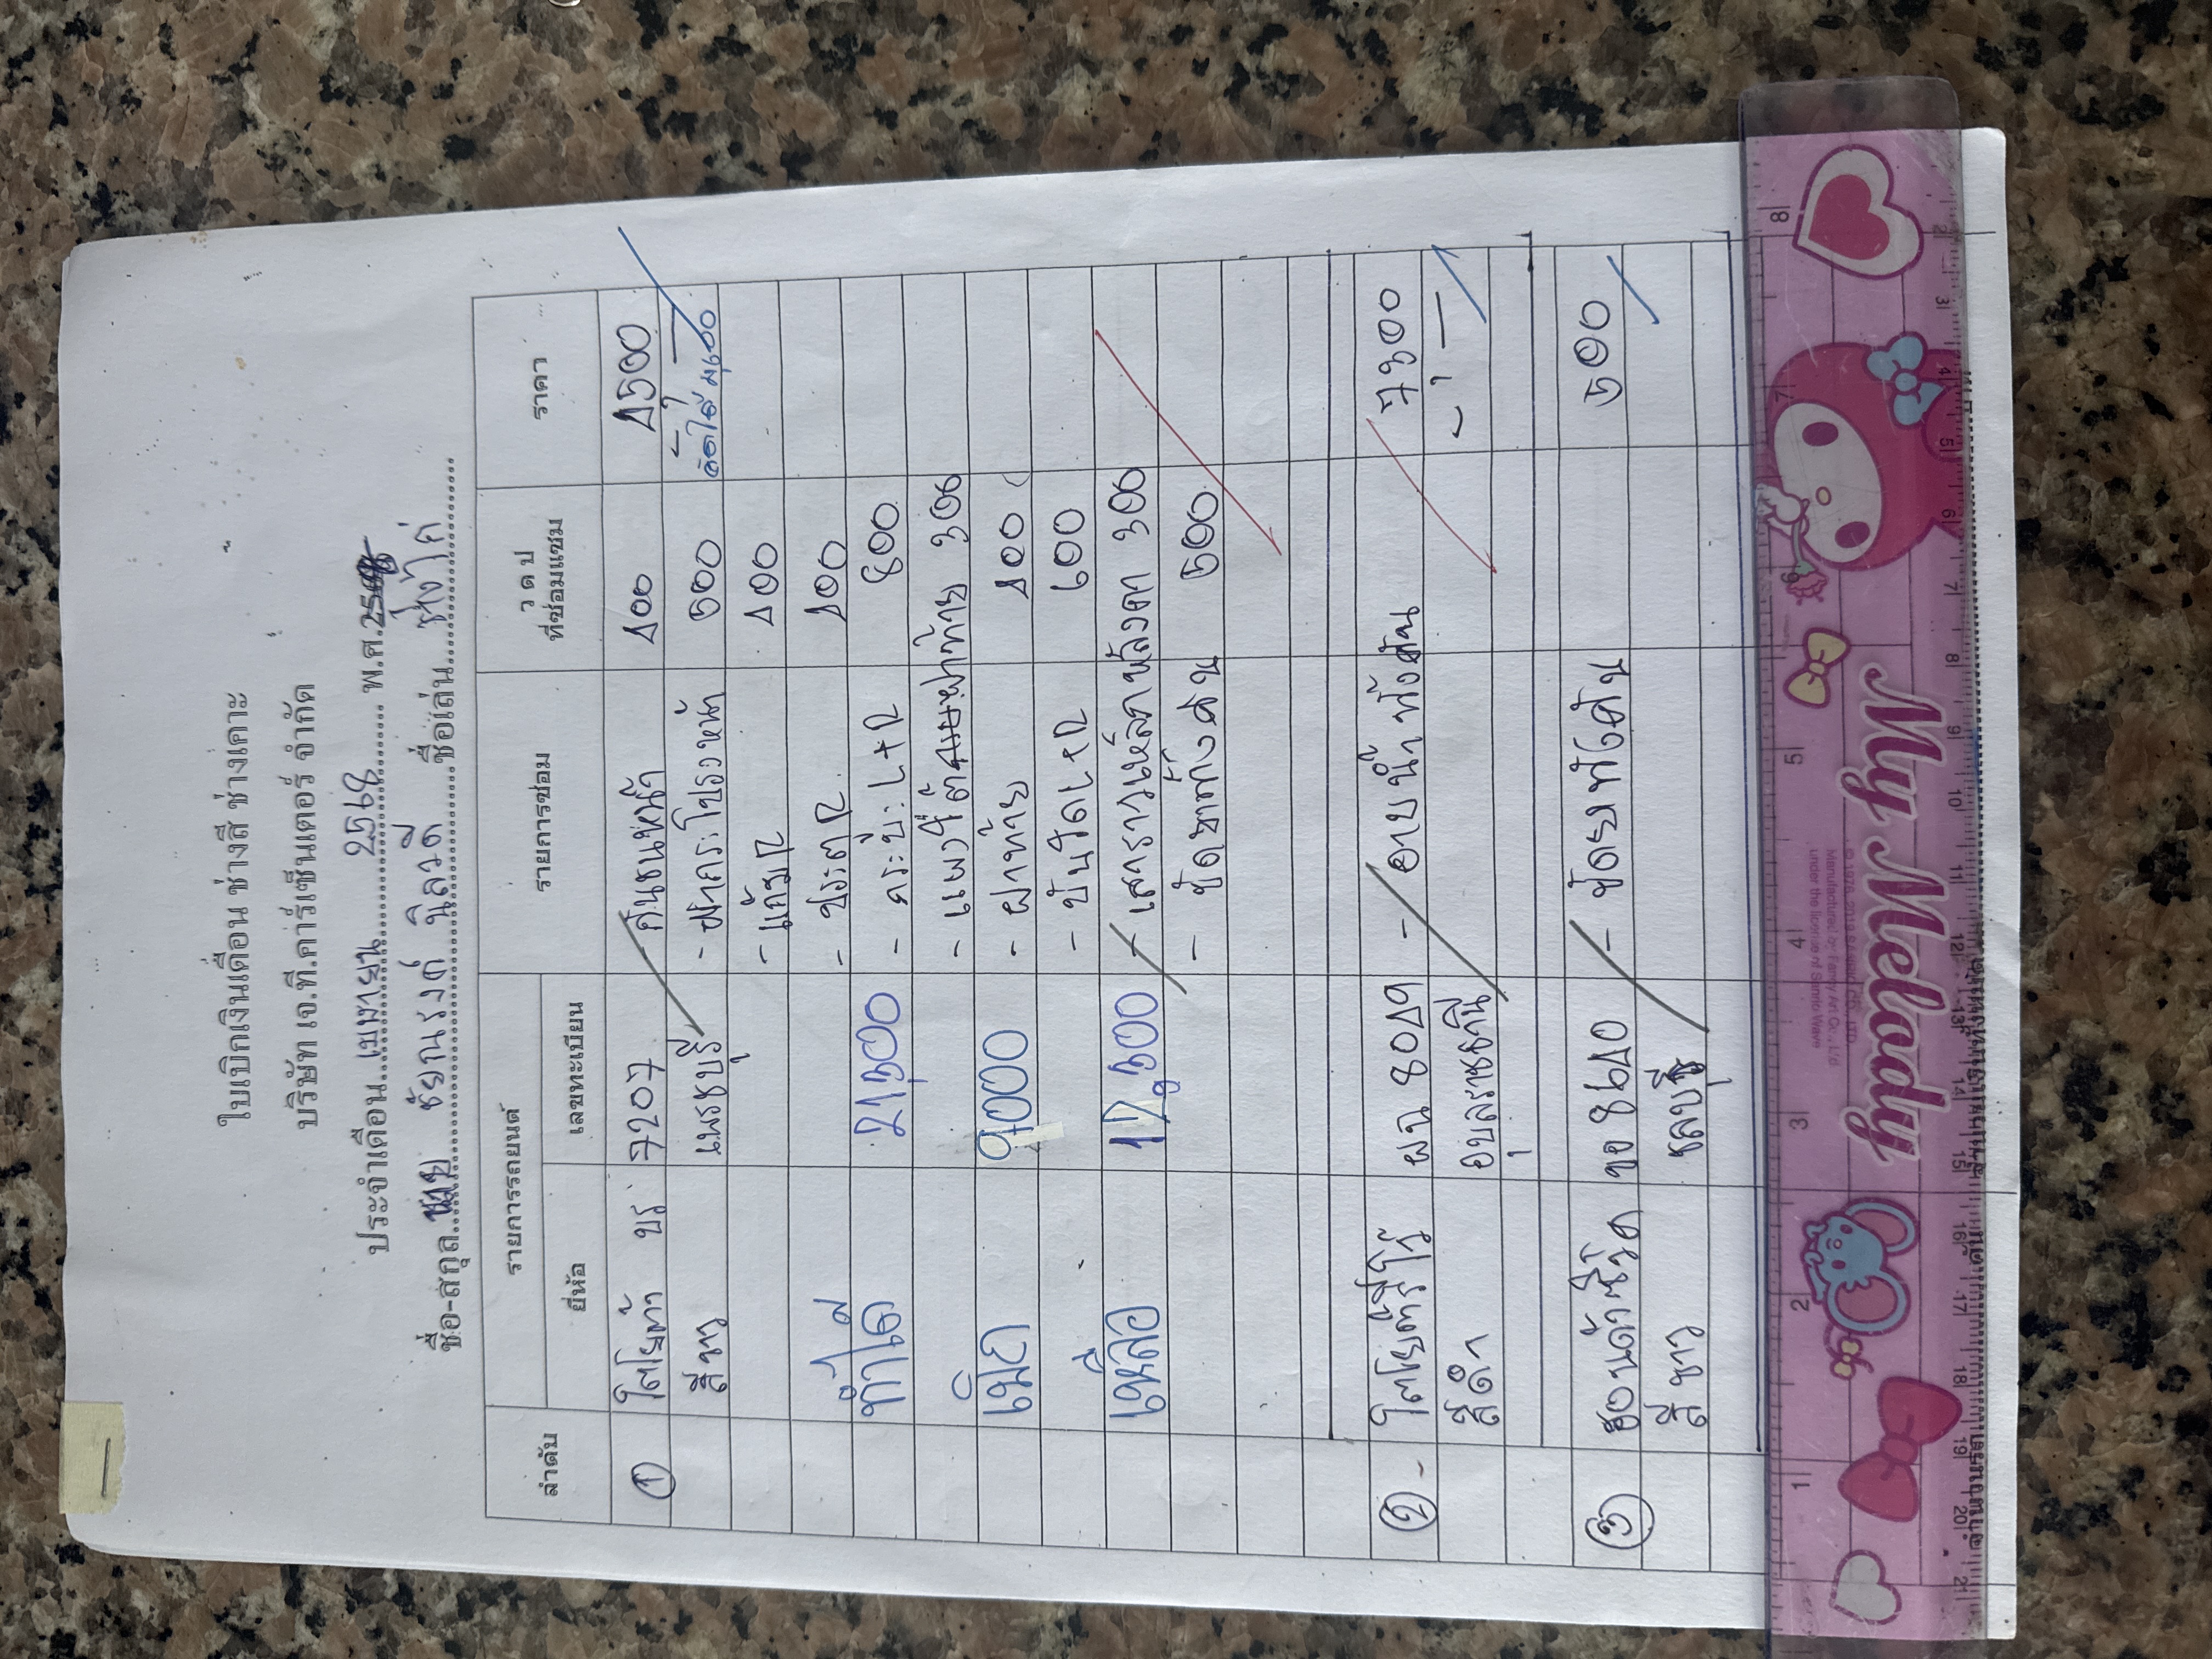 ใบเบิกเงินเดือน ช่างสี ช่างเคาะ
บริษัท เจ.ที.คาร์เซ็นเตอร์ จำกัด
ประจำเดือน...เมษายน...2568... พ.ศ.
ชื่อ-สกุล... ชัยณรงค์ นิลวดี...ชื่อเล่น...
ลำดับ รายการรถยนต์ รายการซ่อม ว ด ป ที่ซ่อมแซม ราคา
ยี่ห้อ เลขทะเบียน
① โตโยต้า บร 7207 - กันชนหน้า 400 4500
สีขาว เพชรบุรี - ฝากระโปรงหน้า 500
- แก้ม R 400
- ประตู R 400
ทำได้ 21,300 - กระบะ L+R 800
- แผงใต้ ฝาท้าย 300
เบิก 9,000 - ฝาท้าย 400
- บันได L+R 600
เหลือ 12,300 - เสากลางเหล็กหลังคา 300
- ขัดยาทั้งคัน 500
② - โตโยต้ารีโว่ ผฉ 8049 - อาบน้ำทั้งคัน 7300
สีดำ อุบลราชธานี
③ ฮอนด้าซีวิค ขอ 8640 - ขัดยาทั้งคัน 500
สีขาว ชลบุรี
My Melody